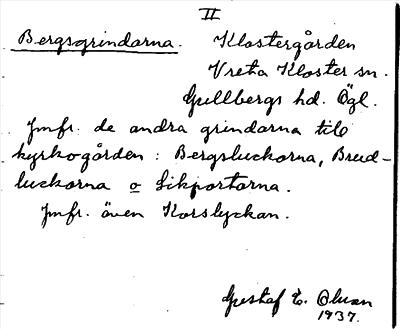 II
Bergsgrindarna. Klostergården
Vreta Kloster sn.
Gullbergs hd. Ögl.
Jmfr. de andra grindarna till
kyrkogården: Bergsluckorna, Brud-
luckorna o Likportarna.
Jmfr. även Korslyckan.
Gustaf E. Olson
1937.